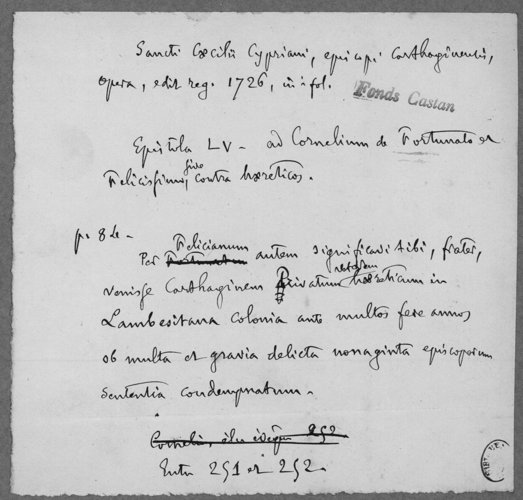 Sancti Cæcilii Cypriani, episcopi Carthaginensis,
opera, edit reg. 1726, in-fol.
Fonds Castan
Epistola LV - ad Cornelium de Fortunato et
Felicissimo, sive contra hæreticos.
p. 84 -
Per Felicianum Fortunatum autem significavi tibi, frater,
venisse Carthaginem Privatum veterem hæreticum in
Lambesitana colonia ante multos fere annos
ob multa et gravia delicta nonaginta episcoporum
sententia condempnatum.
Cornelii, élu évêque 252
Entre 251 et 252.